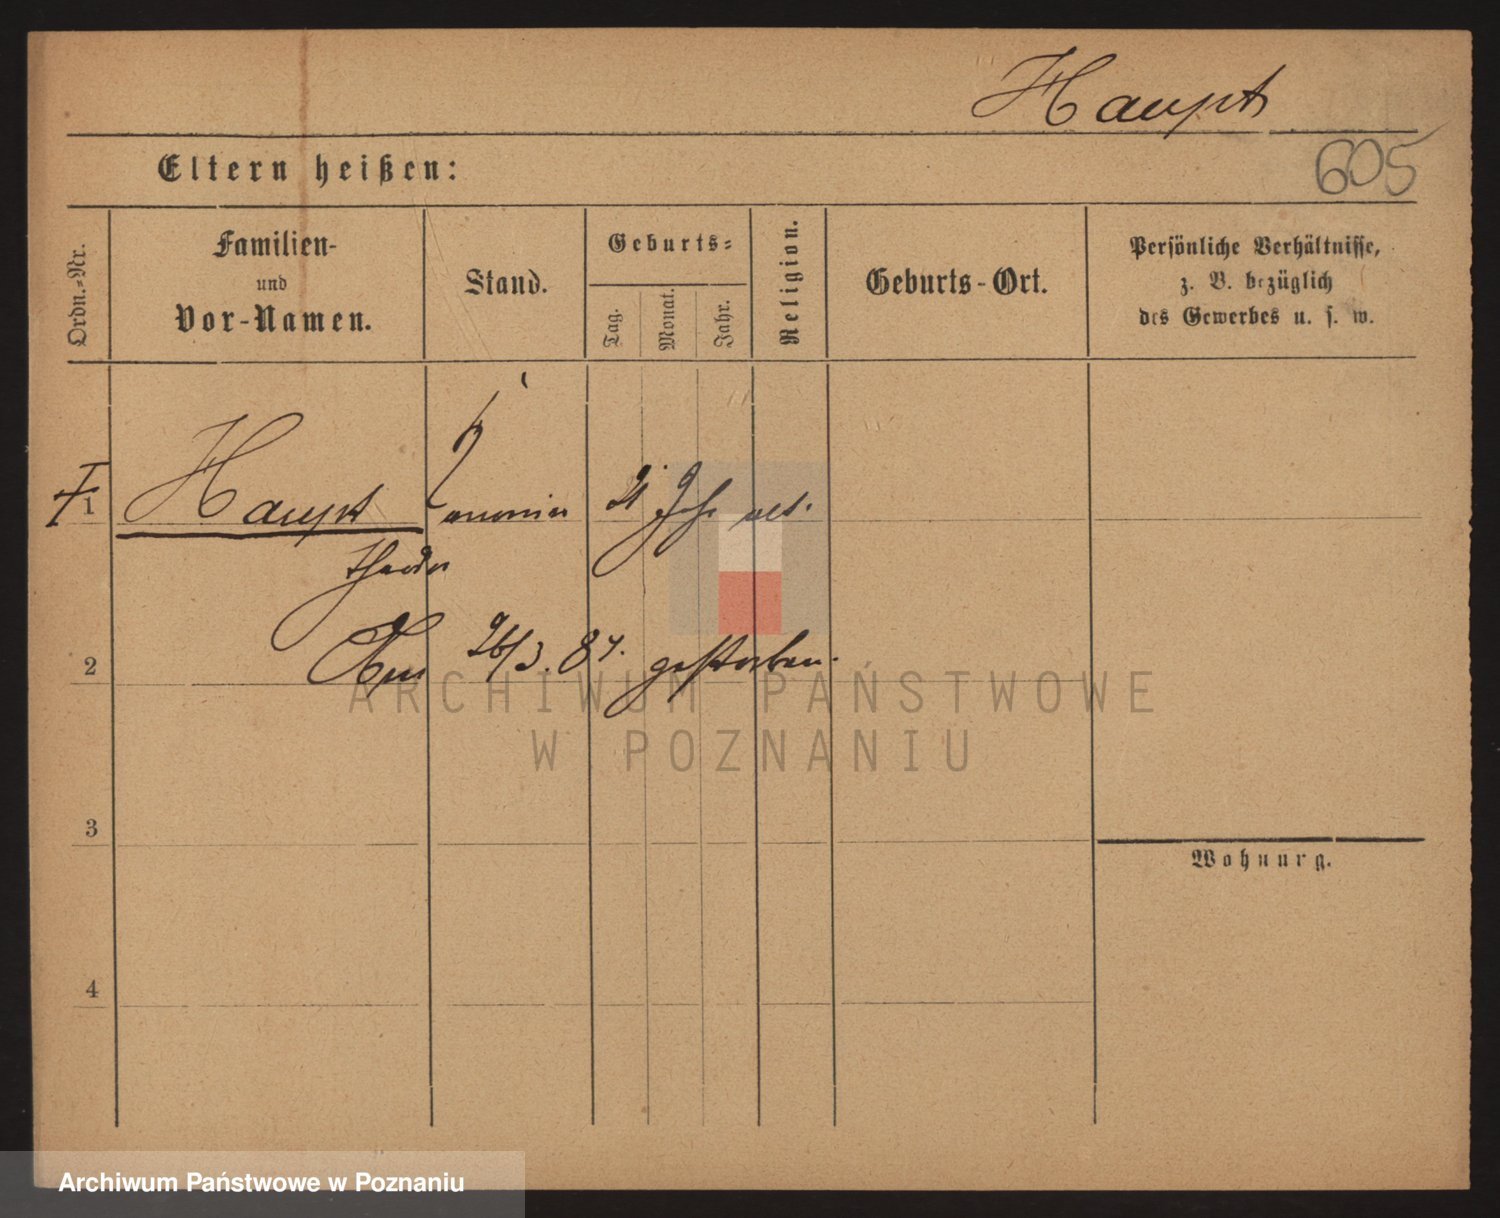 Haupt
605
Eltern heißen:
Ordn.-Nr.
Familien-
und
Vor-Namen.
Stand.
Geburts-
Tag.
Monat.
Jahr.
Religion.
Geburts-Ort.
Persönliche Verhältnisse,
z. B. bezüglich
des Gewerbes u. s. w.
1
Haupt
21 Jahr alt.
Theodor
2
26/3. 87. gestorben.
ARCHIWUM PAŃSTWOWE
W POZNANIU
3
Wohnung.
4
Archiwum Państwowe w Poznaniu